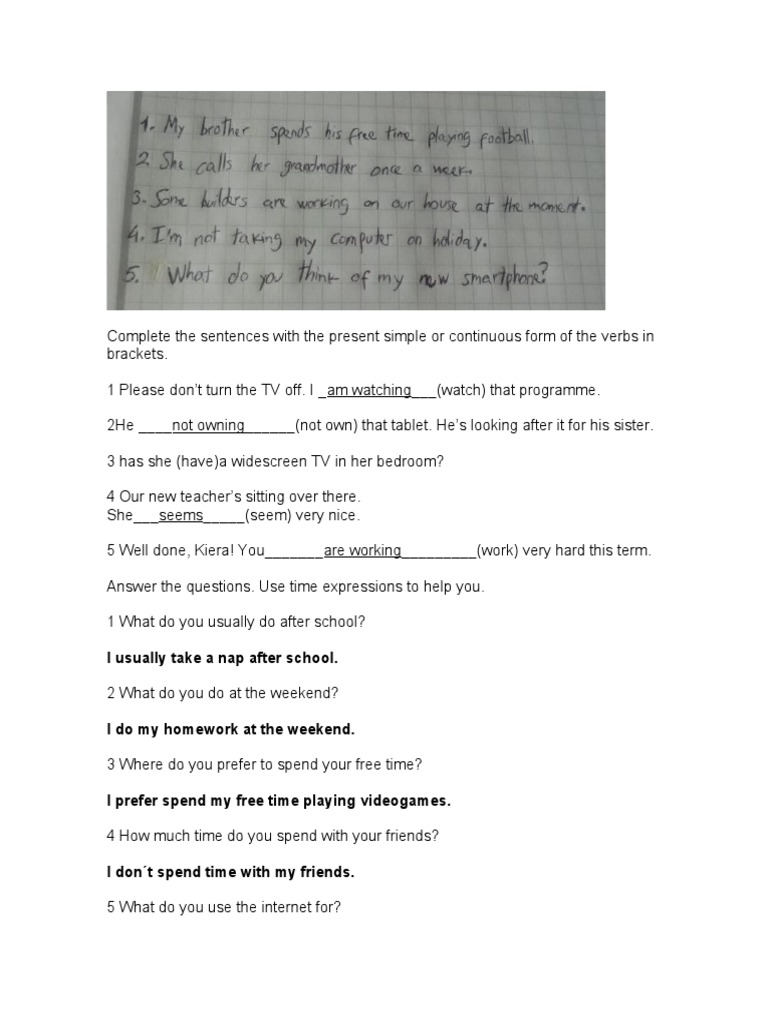 1. My brother spends his free time playing football.
2. She calls her grandmother once a week.
3. Some builders are working on our house at the moment.
4. I'm not taking my computer on holiday.
5. What do you think of my new smartphone?
Complete the sentences with the present simple or continuous form of the verbs in
brackets.
1 Please don't turn the TV off. I _am watching___(watch) that programme.
2He ____not owning______(not own) that tablet. He's looking after it for his sister.
3 has she (have)a widescreen TV in her bedroom?
4 Our new teacher's sitting over there.
She___seems_____(seem) very nice.
5 Well done, Kiera! You_______are working_________(work) very hard this term.
Answer the questions. Use time expressions to help you.
1 What do you usually do after school?
I usually take a nap after school.
2 What do you do at the weekend?
I do my homework at the weekend.
3 Where do you prefer to spend your free time?
I prefer spend my free time playing videogames.
4 How much time do you spend with your friends?
I don´t spend time with my friends.
5 What do you use the internet for?